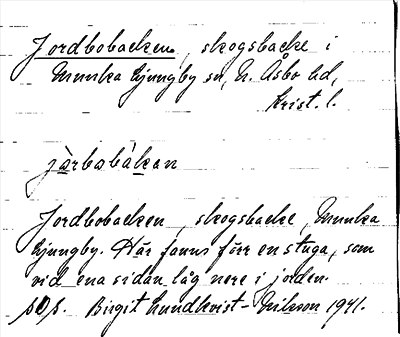 Jordbobacken, skogsbacke i
Munka Ljungby sn, N. Åsbo hd,
Krist. l.
jàrbobákan
Jordbobacken, skogsbacke, Munka
Ljungby. Här fanns förr en stuga, som
vid ena sidan låg nere i jorden.
Birgit Lundkvist-Erikson 1941.